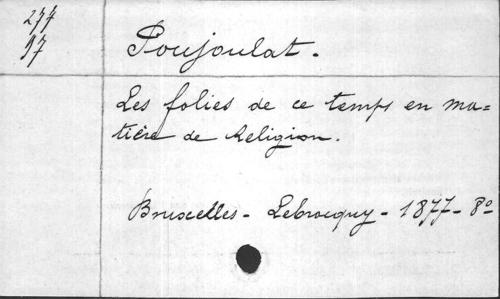 277
97
Poujoulat.
Les folies de ce temps en ma=
tière de Religion.
Bruxelles - Lebrocquy - 1877 - 8º